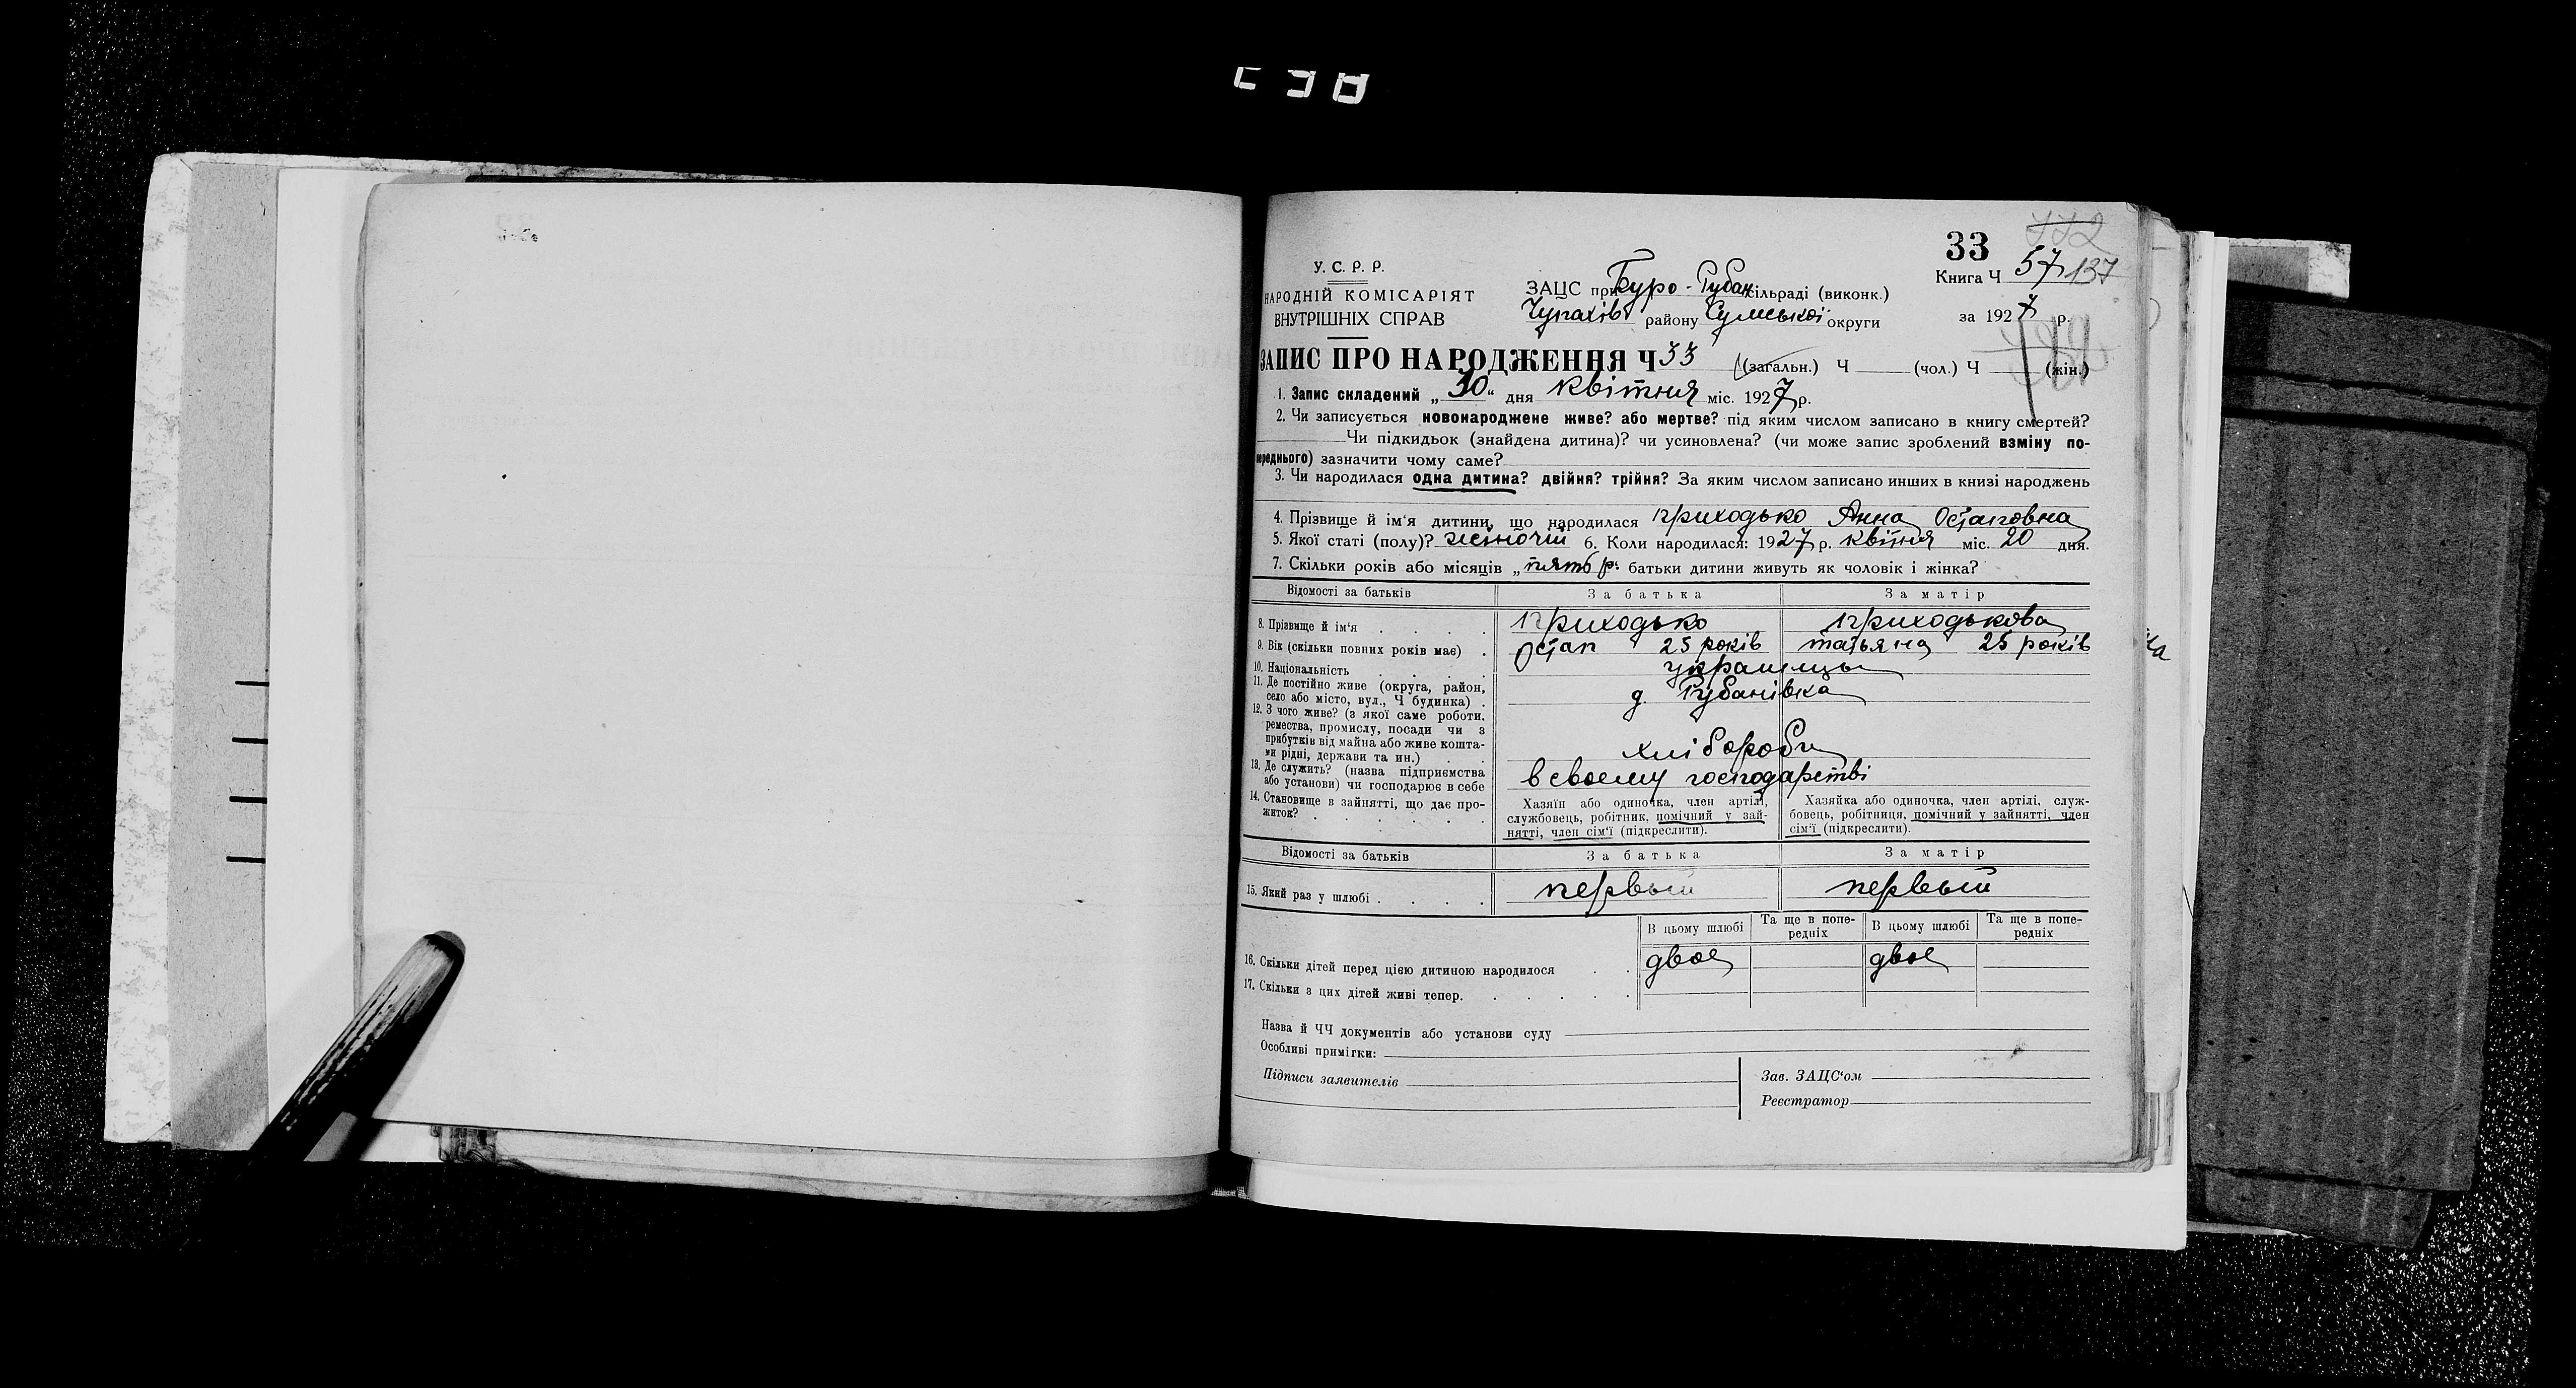 33
Книга Ч 57 137
У. С. Р. Р.
НАРОДНІЙ КОМІСАРІЯТ
ВНУТРІШНІХ СПРАВ
ЗАЦС при Буро-Рубан сільраді (виконк.)
Чупахів району Сумської округи
за 1927 р.
ЗАПИС ПРО НАРОДЖЕННЯ Ч 33 (загальн.) Ч (чол.) Ч (жін.)
1. Запис складений „30“ дня квітня міс. 1927 р.
2. Чи записується новонароджене живе? або мертве? під яким числом записано в книгу смертей?
Чи підкидьок (знайдена дитина)? чи усиновлена? (чи може запис зроблений взміну по-
переднього) зазначити чому саме?
3. Чи народилася одна дитина? двійня? трійня? За яким числом записано инших в книзі народжень
4. Прізвище й ім‘я дитини, що народилася Приходько Анна Остаповна
5. Якої статі (полу)? жіночій 6. Коли народилася: 1927 р. квітня міс. 20 дня.
7. Скільки років або місяців „пять р. батьки дитини живуть як чоловік і жінка?
Відомості за батьків За батька За матір
8. Прізвище й ім‘я Приходько Приходькова
9. Вік (скільки повних років має) Остап 25 років татьяна 25 років
10. Національність украинцы
11. Де постійно живе (округа, район,
село або місто, вул., Ч будинка) д. Рубанівка
12. З чого живе? (з якої саме роботи,
ремества, промислу, посади чи з
прибутків від майна або живе кошта-
ми рідні, держави та ин.) хлібороби
13. Де служить? (назва підприємства
або установи) чи господарює в себе в своему господарстві
14. Становище в зайнятті, що дає про-
житок?
Хазяїн або одиночка, член артілі,
службовець, робітник, помічний у зай-
нятті, член сім‘ї (підкреслити).
Хазяйка або одиночка, член артілі, служ-
бовець, робітниця, помічний у зайнятті, член
сім‘ї (підкреслити).
Відомості за батьків За батька За матір
15. Який раз у шлюбі первый первый
В цьому шлюбі Та ще в попе-
редніх В цьому шлюбі Та ще в попе-
редніх
16. Скільки дітей перед цією дитиною народилося двое двое
17. Скільки з цих дітей живі тепер.
Назва й ЧЧ документів або установи суду
Особливі примітки:
Підписи заявителів
Зав. ЗАЦС‘ом
Реєстратор